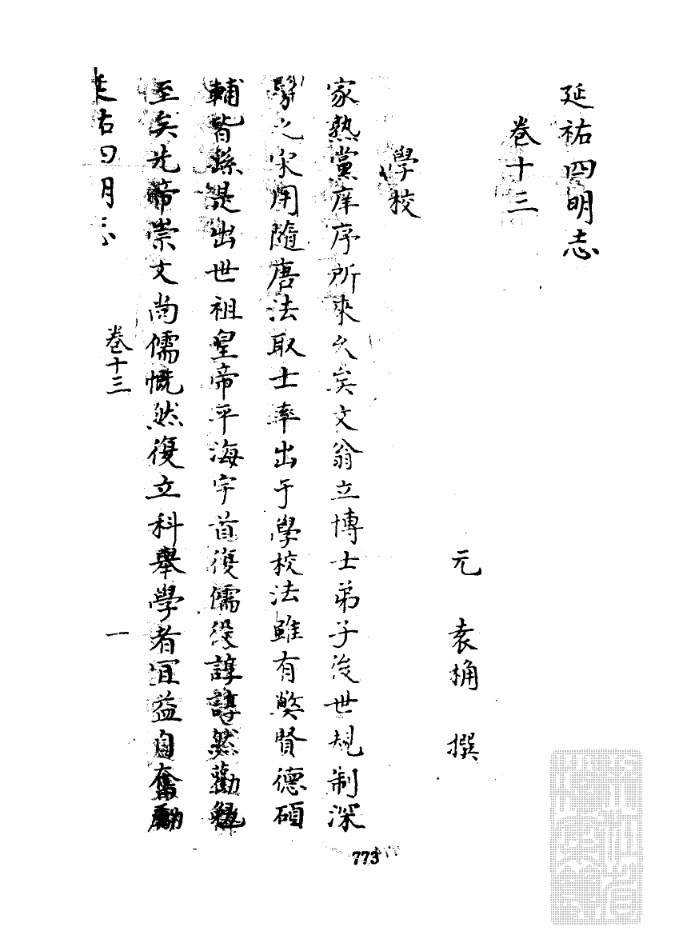 延祐四明志
卷十三
元 袁桷 撰
學校
家熟黨庠序所來久矣文翁立博士弟子後世規制深
彛之宋用隨唐法取士率出于學校法雖有獘賢德碩
輔皆繇是出世祖皇帝平海宇首復儒役諄諄然勸勉
至矣先帝崇文尚儒慨然復立科舉學者宜益自奮勵
延祐四明志 卷十三 一
773